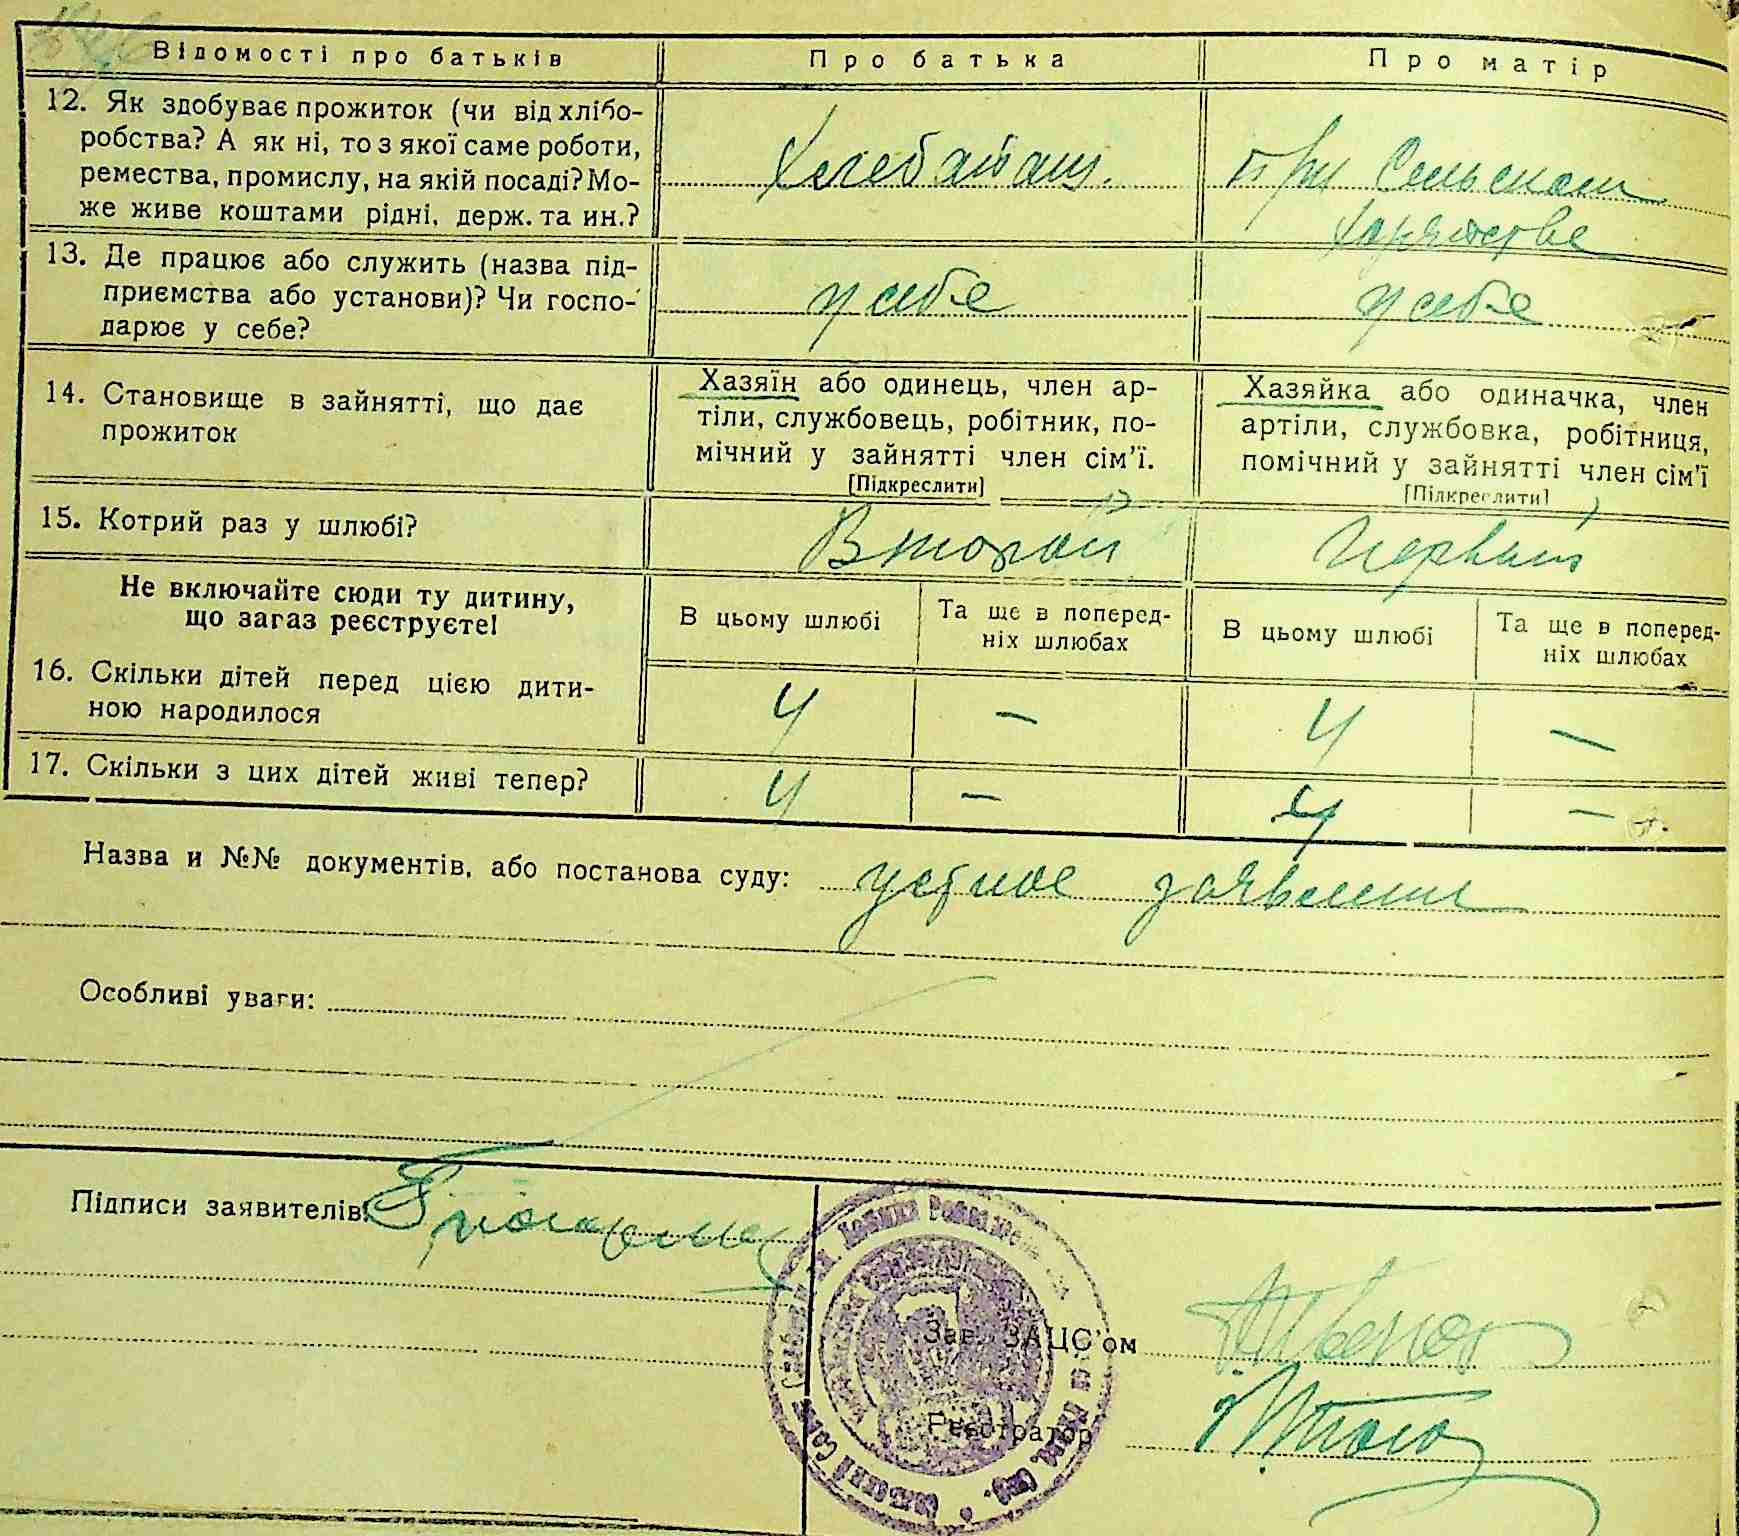 Відомості про батьків
Про батька
Про матір
12. Як здобуває прожиток (чи від хлібо-
робства? А як ні, то з якої саме роботи,
ремества, промислу, на якій посаді? Мо-
же живе коштами рідні, держ. та ин.?
При Сельском
13. Де працює або служить (назва під-
приємства або установи)? Чи госпо-
дарює у себе?
у себе
у себе
14. Становище в зайнятті, що дає
прожиток
Хазяїн або одинець, член ар-
тіли, службовець, робітник, по-
мічний у зайнятті член сім'ї.
[Підкреслити]
Хазяйка або одиначка, член
артіли, службовка, робітниця,
помічний у зайнятті член сім'ї
[Підкреслити]
15. Котрий раз у шлюбі?
Второй
Первый
Не включайте сюди ту дитину,
що загаз реєструєте!
В цьому шлюбі
Та ще в поперед-
ніх шлюбах
В цьому шлюбі
Та ще в поперед-
ніх шлюбах
16. Скільки дітей перед цією дити-
ною народилося
4
–
4
–
17. Скільки з цих дітей живі тепер?
4
–
4
–
Назва и №№ документів, або постанова суду: устное заявление
Особливі уваги:
Підписи заявителів:
Зав. ЗАЦС'ом
Реєстратор